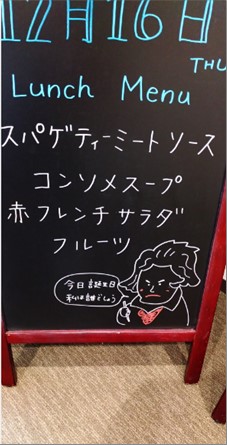 12月16日
THU
Lunch Menu
スパゲティーミートソース
コンソメスープ
赤フレンチサラダ
フルーツ
今日誕生日
私は誰でしょう